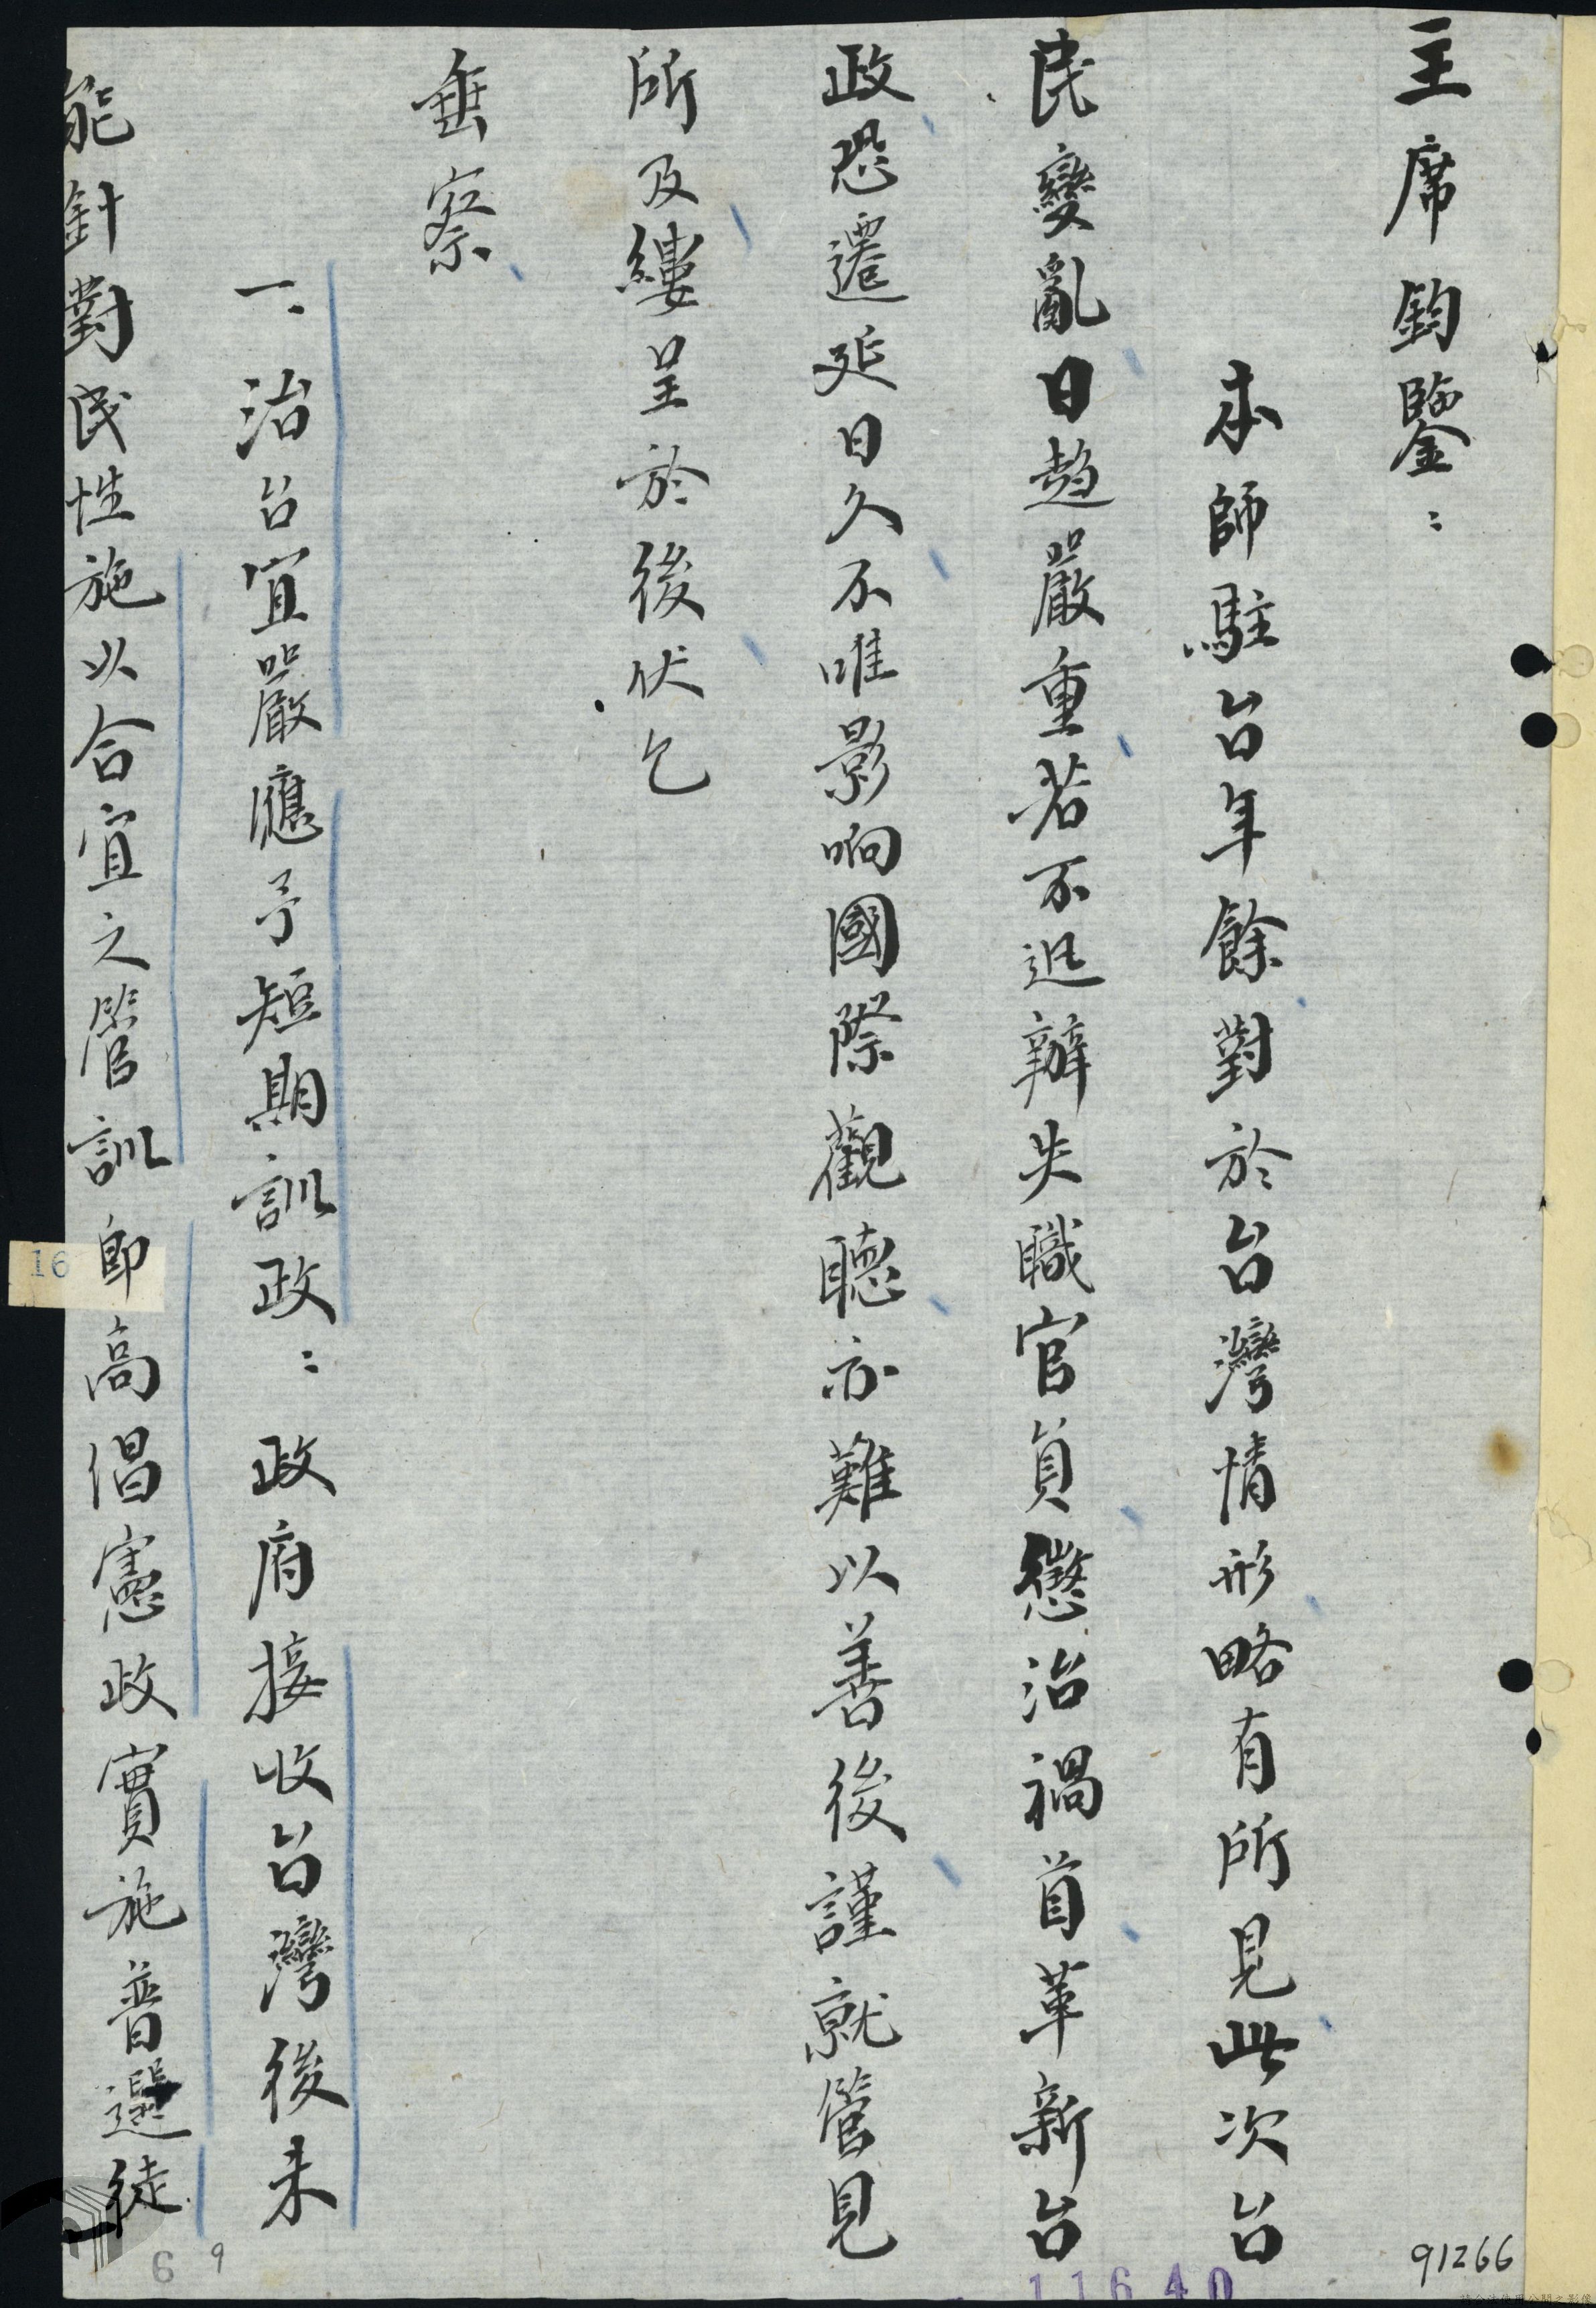 主席鈞鑒：
本師駐台年餘對於台灣情形略有所見此次台
民變亂日趨嚴重若不迅辦失職官員懲治禍首革新台
政恐遷延日久不唯影响國際觀聽亦難以善後謹就管見
所及縷呈於後伏乞
垂察
一、治台宜嚴應予短期訓政：政府接收台灣後未
能針對民性施以合宜之管訓即高倡憲政實施普選徒
91266
11640
16
6 9